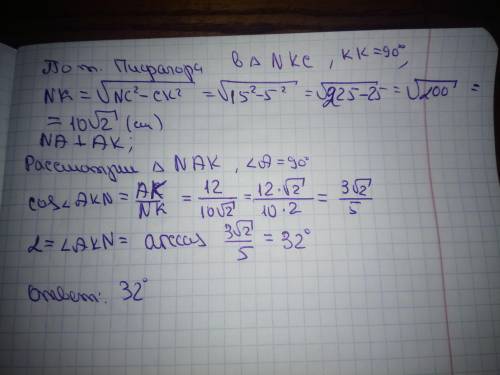 По т. Пифагора в △ NKC, ∠K=90°,
NK = √(NC²-CK²) = √(15²-5²) = √(225-25) = √200 =
= 10√2 (см)
NA ⊥ AK;
Рассмотрим △ NAK, ∠A=90°
cos∠AKN = AK/NK = 12/(10√2) = (12·√2)/(10·2) = (3√2)/5
α = ∠AKN = arccos (3√2)/5 = 32°
ответ: 32°